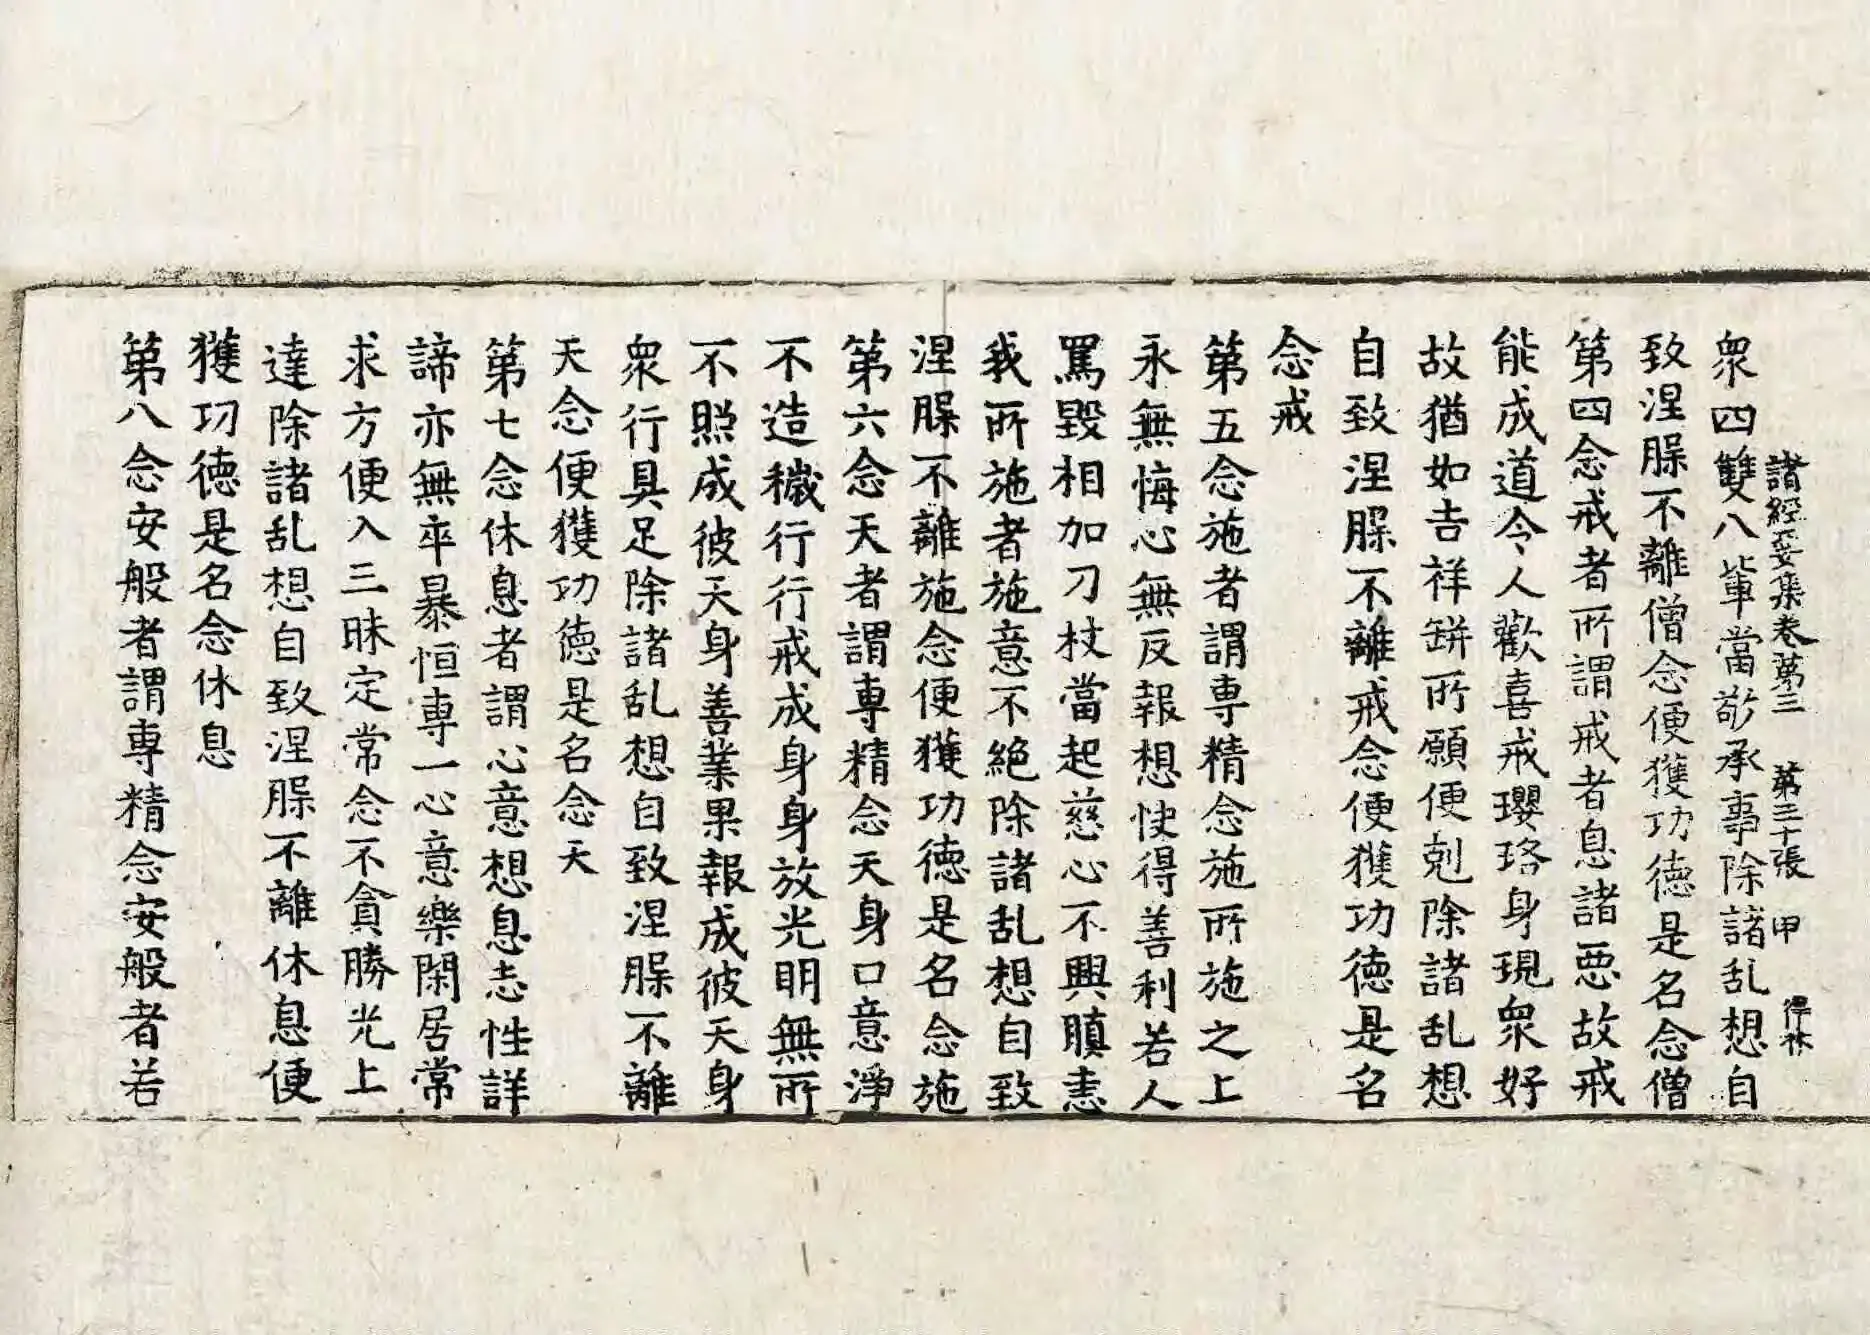 諸經要集卷第三　第三十張　甲　得林
衆四雙八輩當敬承事除諸乱想自
致涅脲不離僧念便獲功德是名念僧
第四念戒者所謂戒者息諸惡故戒
能成道令人歡喜戒瓔珞身現衆好
故猶如吉祥缾所願便剋除諸乱想
自致涅脲不離戒念便獲功德是名
念戒
第五念施者謂專精念施所施之上
永無悔心無反報想快得善利若人
罵毀相加刀杖當起慈心不興瞋恚
我所施者施意不絶除諸乱想自致
涅脲不離施念便獲功德是名念施
第六念天者謂專精念天身口意淨
不造穢行行戒成身身放光明無所
不照成彼天身善業果報成彼天身
衆行具足除諸乱想自致涅脲不離
天念便獲功德是名念天
第七念休息者謂心意想息志性詳
諦亦無卒暴恒專一心意樂閑居常
求方便入三昧定常念不貪勝光上
達除諸乱想自致涅脲不離休息便
獲功德是名念休息
第八念安般者謂專精念安般者若